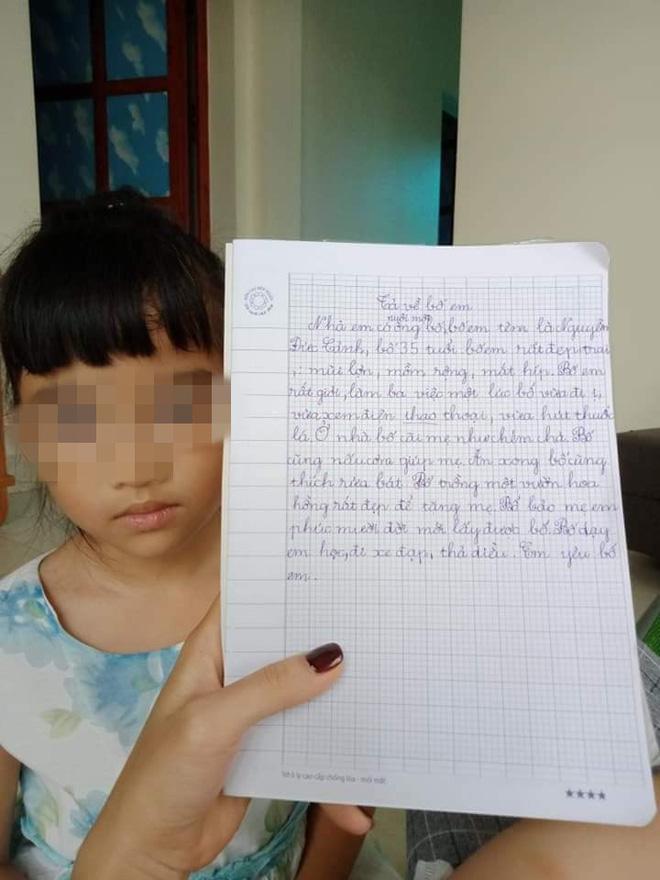 Tả về bố em
nuôi một
Nhà em có ông bố, bố em tên là Nguyễn
Đức Cảnh, bố 35 tuổi bố em rất đẹp trai
, mũi lớn, mồm rộng, mắt híp. Bố em
rất giỏi, làm ba việc một lúc bố vừa đi ị,
vừa xem điên thao thoại, vừa hút thuốc
lá. Ở nhà bố cãi mẹ như chém chả. Bố
cũng nấu cơm giúp mẹ. Ăn xong bố cũng
thích rửa bát. Bố trồng một vườn hoa
hồng rất đẹp để tăng mẹ. Bố bảo mẹ em
phúc mười đời mới lấy được bố. Bố dạy
em học, đi xe đạp, thả diều. Em yêu bố
em.
Vở ô ly cao cấp chống lóa - mỏi mắt